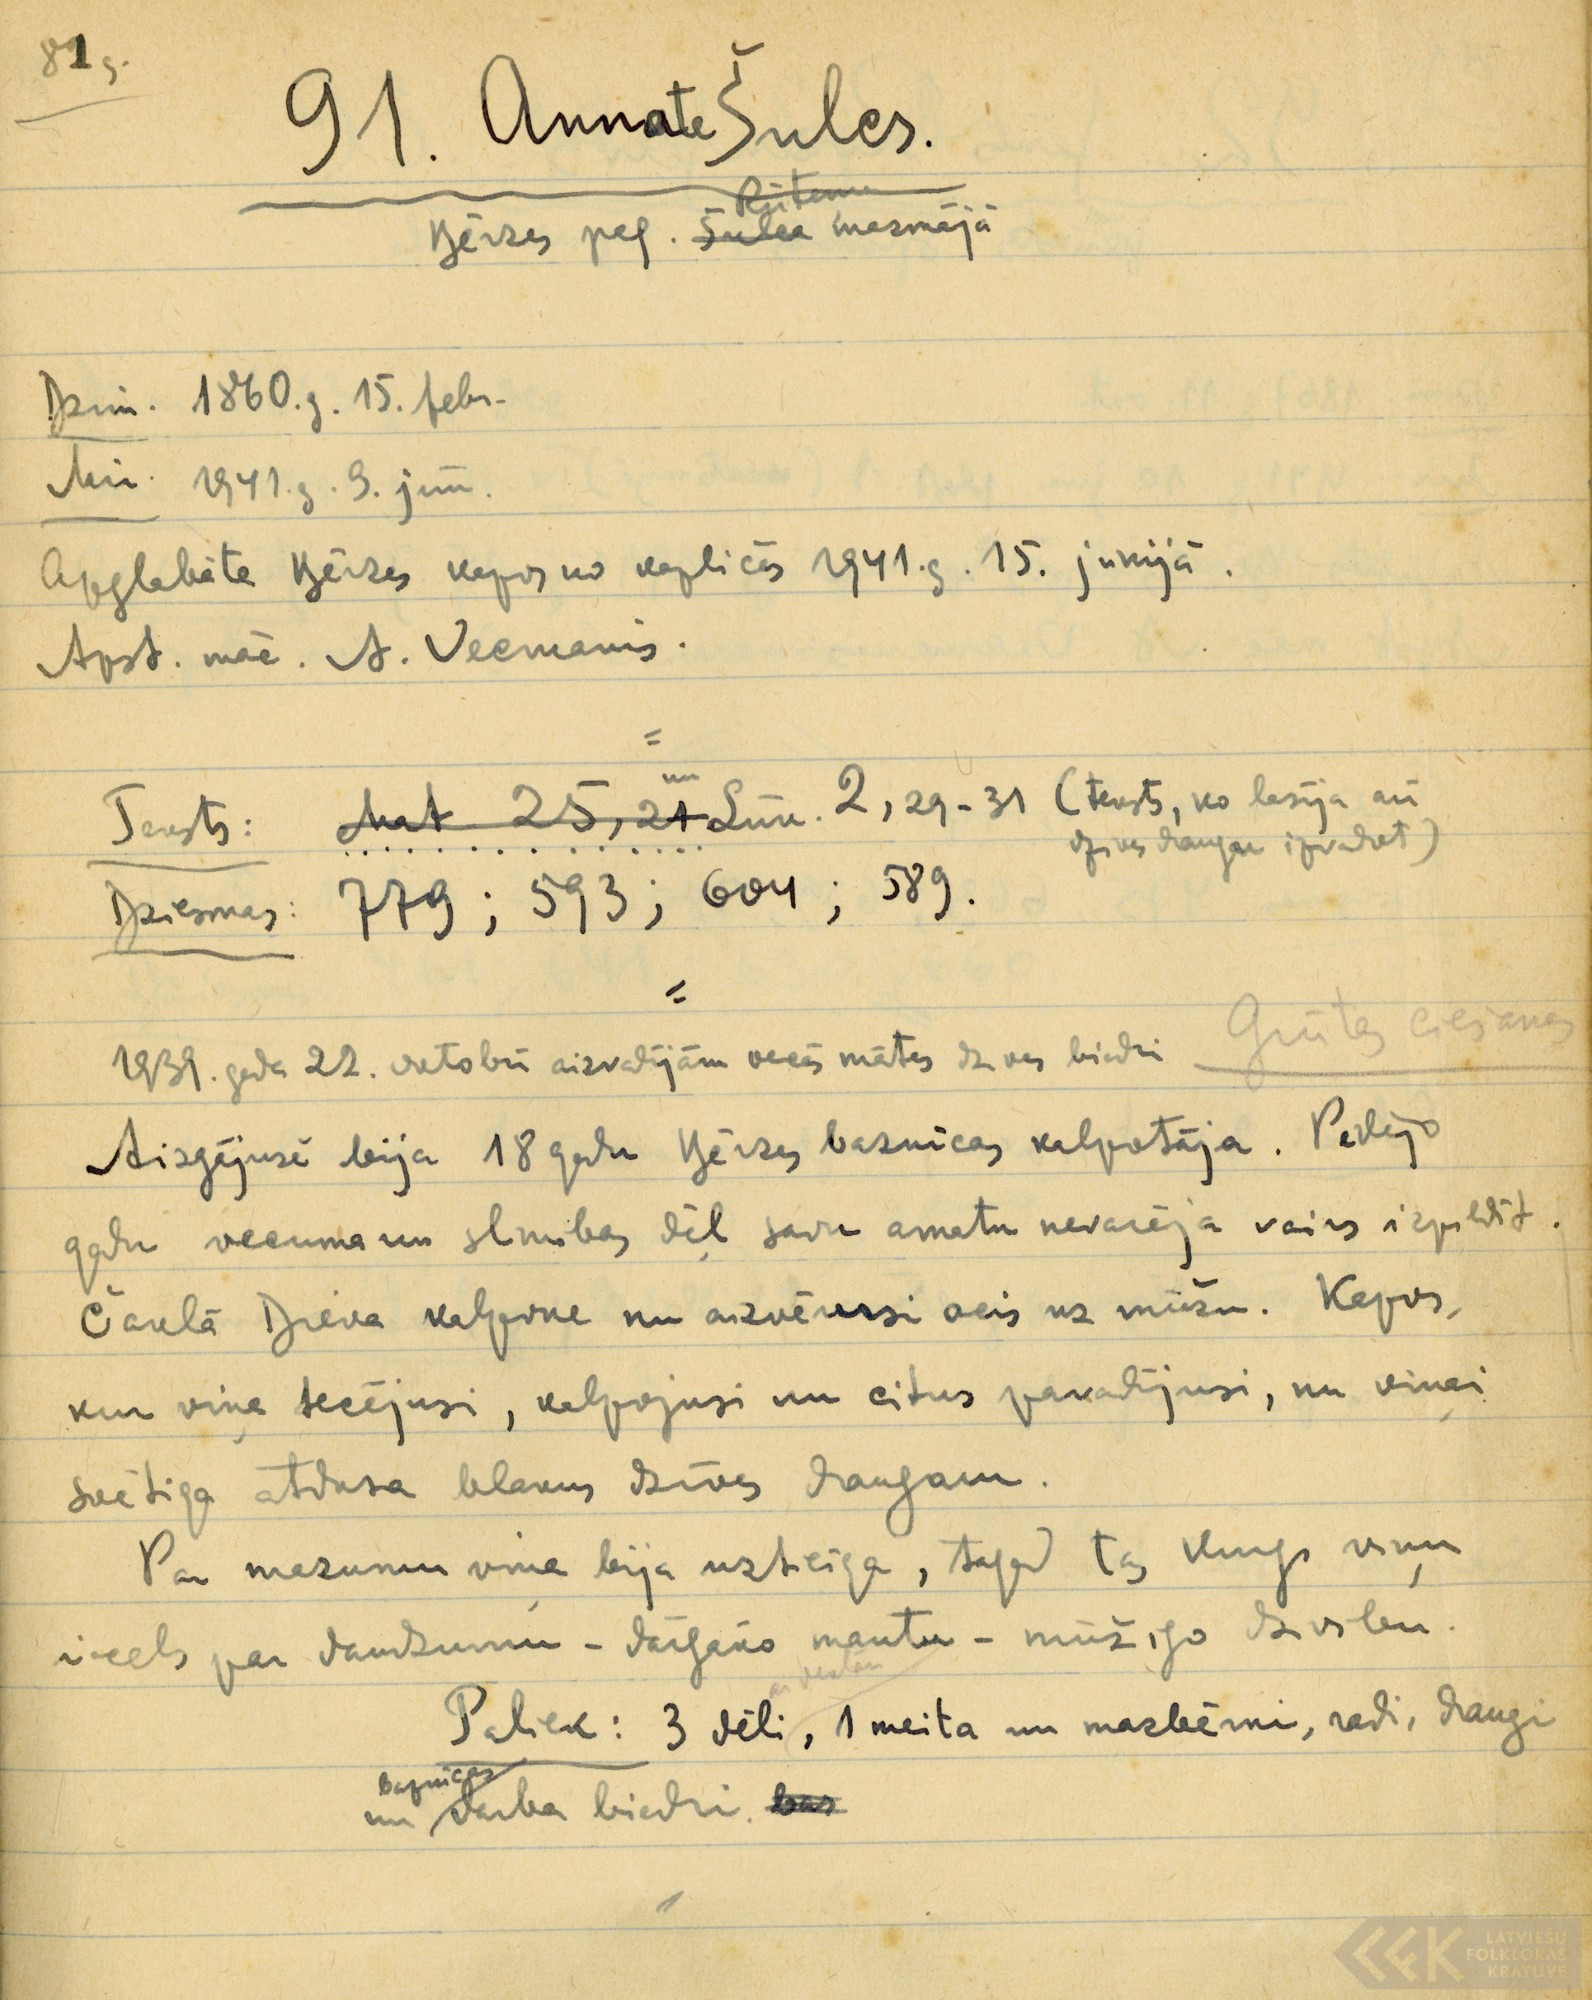 81 g.
91. Annate Šulcs.
Rītema
Ķērzes pag. Šulca mazmājā
Dzim. 1860.g. 15. febr.
Mir. 1941.g. 9. jūn.
Apglabāta Ķērzes kapos no kapličas 1941.g. 15. jūnijā.
Apst. māc. A. Vecmanis.
=
Teksts: Mat 25, 21 nu Lūk. 2, 29-31 (teksts, ko lasīja arī
dzīves draugu izvadot)
Dziesmas: 779; 593; 604; 589.
=
Grūtas ciešanas
1939. gada 22. oktobrī aizvadījām vecās mātes dzīves biedri
Aizgājusē bija 18 gadu Ķērzes baznīcas kalpotāja. Pēdējo
gadu vecuma un slimības dēļ savu amatu nevarēja vairs izpildīt.
Čaklā Dieva kalpone nu aizvērusi acis uz mūžu. Kapos,
kur viņa tecējusi, kalpojusi un citus pavadījusi, nu viņai
svētīga atdusa blakus dzīves draugam.
Par mazumu viņa bija uzticīga, tagad tas Kungs viņu
iecels par daudzumu - dārgāko mantu - mūžīgo dzīvību.
ar vedām
Paliek: 3 dēli, 1 meita un mazbērni, radi, draugi
baznīcas
un darba biedri. bas
LATVIEŠU
FOLKLORAS
KRĀTUVE